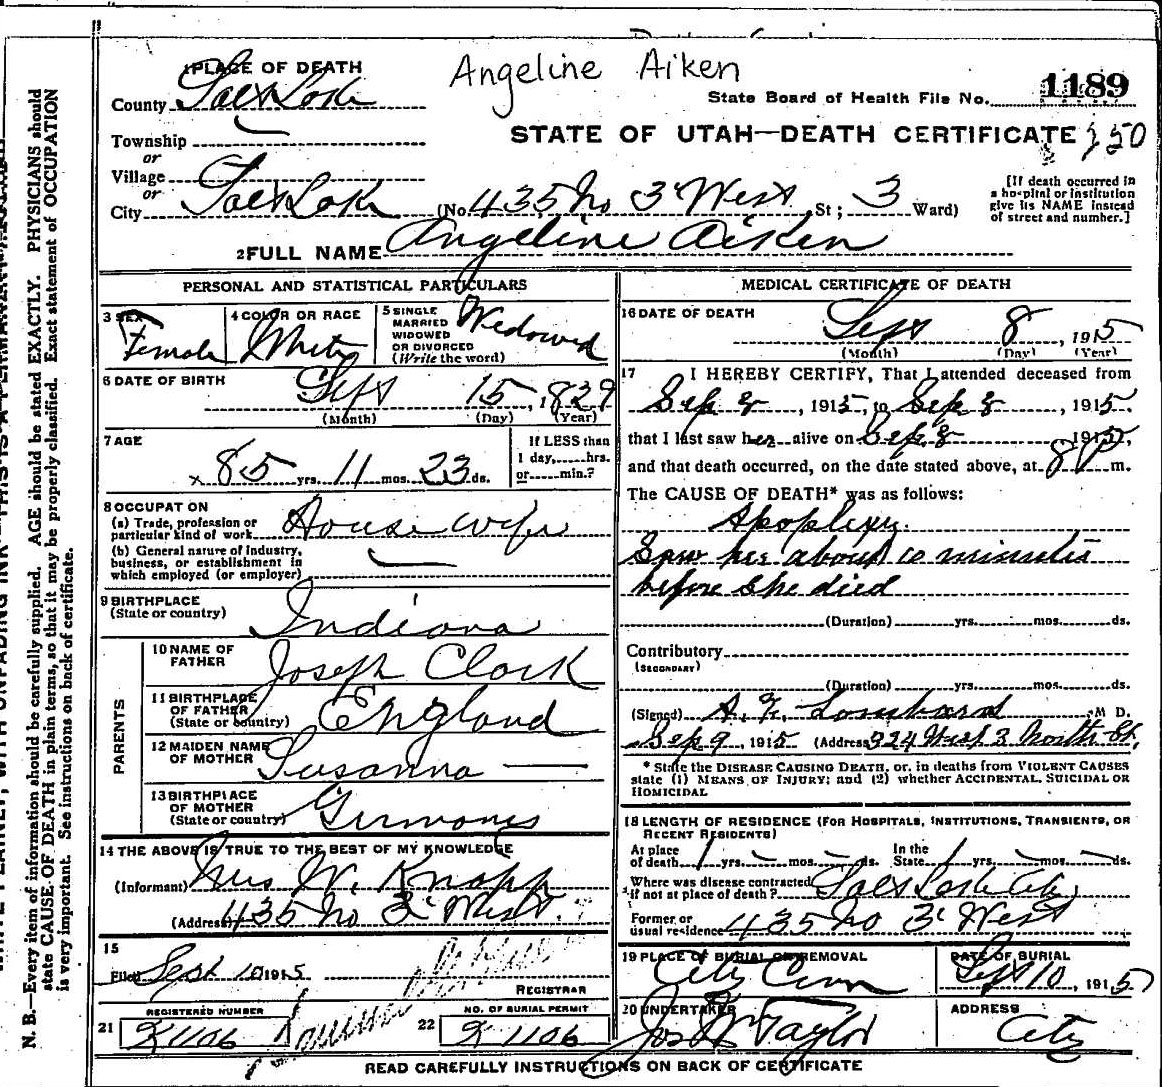 Angeline Aiken
1 PLACE OF DEATH
County Salt Lake
State Board of Health File No. 1189
Township
or
Village
or
City Salt Lake
STATE OF UTAH—DEATH CERTIFICATE 350
(No. 435 No 3' West St; 3 Ward)
[If death occurred in
a hospital or institution
give its NAME instead
of street and number.]
2 FULL NAME Angeline Aiken
PERSONAL AND STATISTICAL PARTICULARS
3 SEX Female
4 COLOR OR RACE White
5 SINGLE
MARRIED
WIDOWED
OR DIVORCED
(Write the word) Widowed
6 DATE OF BIRTH Sept 15, 1829
(Month) (Day) (Year)
7 AGE
85 yrs. 11 mos. 23 ds.
If LESS than
1 day,......hrs.
or......min.?
8 OCCUPATION
(a) Trade, profession or
particular kind of work House wife
(b) General nature of industry,
business, or establishment in
which employed (or employer)
9 BIRTHPLACE
(State or country) Indiana
PARENTS
10 NAME OF
FATHER Joseph Clark
11 BIRTHPLACE
OF FATHER
(State or country) England
12 MAIDEN NAME
OF MOTHER Susanna —
13 BIRTHPLACE
OF MOTHER
(State or country) Germany
14 THE ABOVE IS TRUE TO THE BEST OF MY KNOWLEDGE
(Informant) Mrs W. Knapp
(Address) 435 No 3' West
15
Filed Sept 10 1915
REGISTRAR
21 REGISTERED NUMBER
K1106
22 NO. OF BURIAL PERMIT
K 1106
MEDICAL CERTIFICATE OF DEATH
16 DATE OF DEATH
Sept 8, 1915
(Month) (Day) (Year)
17 I HEREBY CERTIFY, That I attended deceased from
Sep 8, 1915, to Sep 8, 1915.
that I last saw her alive on Sep. 8 1915,
and that death occurred, on the date stated above, at 8 P m.
The CAUSE OF DEATH* was as follows:
Apoplexy.
Saw her about 10 minutes
before she died
(Duration)......yrs......mos......ds.
Contributory
(SECONDARY)
(Duration)......yrs......mos......ds.
(Signed) M D.
Sep 9, 1915 (Address) 924 West 3 North St.
* State the DISEASE CAUSING DEATH, or, in deaths from VIOLENT CAUSES
state (1) MEANS OF INJURY; and (2) whether ACCIDENTAL, SUICIDAL OR
HOMICIDAL
18 LENGTH OF RESIDENCE (FOR HOSPITALS, INSTITUTIONS, TRANSIENTS, OR
RECENT RESIDENTS)
At place
of death 1 yrs. — mos. — ds.
In the
State 1 yrs. — mos. — ds.
Where was disease contracted
if not at place of death? Salt Lake City
Former or
usual residence 435 No 3' West
19 PLACE OF BURIAL OR REMOVAL
City Cem
DATE OF BURIAL
Sept 10, 1915
20 UNDERTAKER
Jos Wm Taylor
ADDRESS
City
READ CAREFULLY INSTRUCTIONS ON BACK OF CERTIFICATE
N. B.—Every item of information should be carefully supplied. AGE should be stated EXACTLY. PHYSICIANS should
state CAUSE OF DEATH in plain terms, so that it may be properly classified. Exact statement of OCCUPATION
is very important. See instructions on back of certificate.